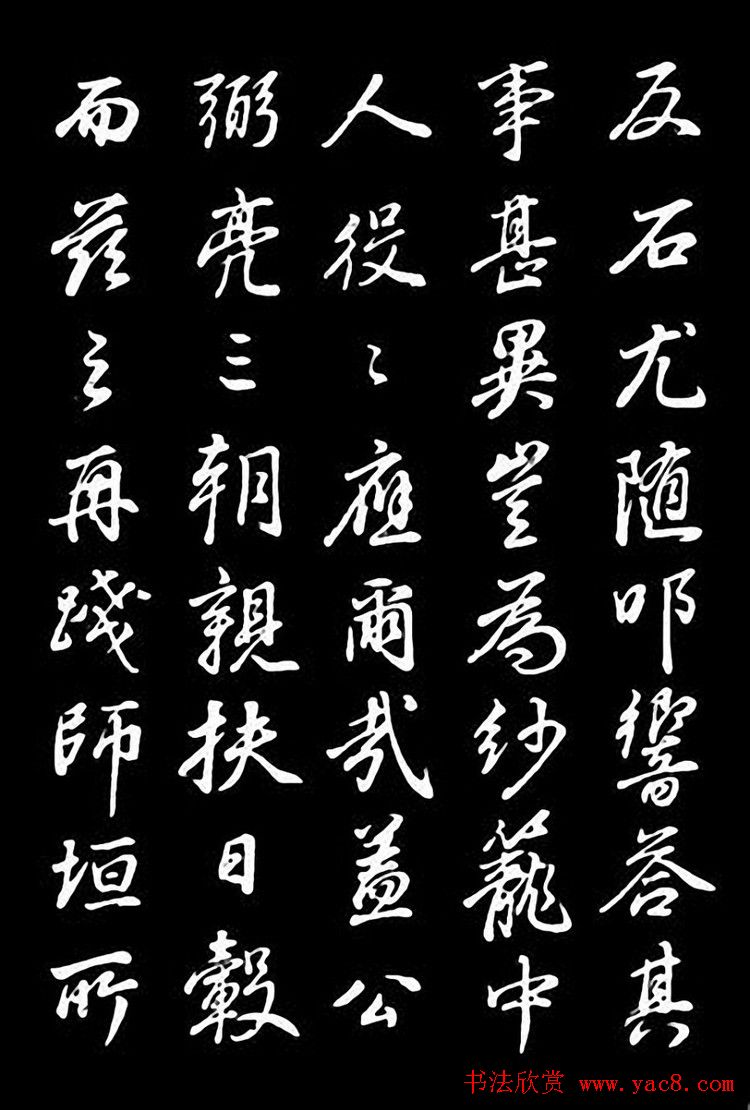 反石尤随叩響答其
事甚異豈為紗籠中
人役々應爾哉蓋公
弼亮三朝親扶日轂
而茲之再踐師垣所
书法欣赏 www.yac8.com